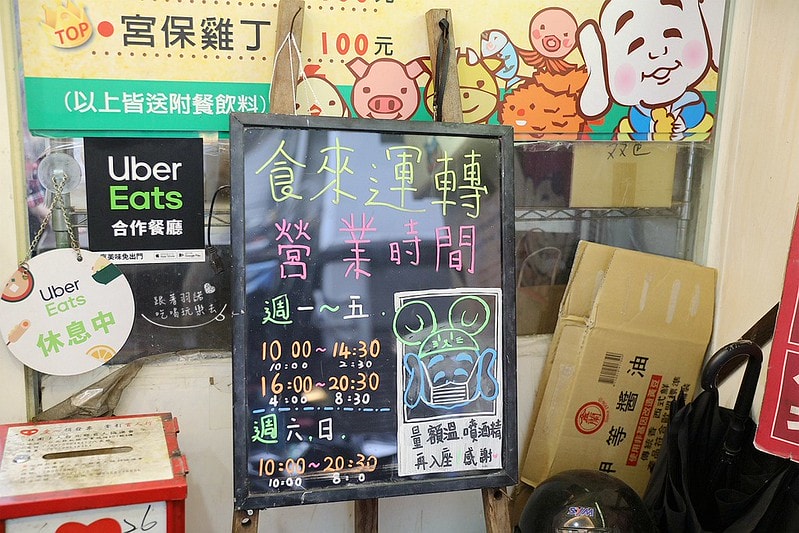 TOP
宮保雞丁
100元
(以上皆送附餐飲料)
Uber
Eats
合作餐廳
Uber
Eats
休息中
跟著羽諾
吃喝玩樂去
食來運轉
營業時間
週一～五.
10:00～14:30
10:00 2:30
16:00～20:30
4:00 8:30
週六,日.
10:00～20:30
10:00 8:30
量額溫噴酒精
再入座 感謝
甲等醬油